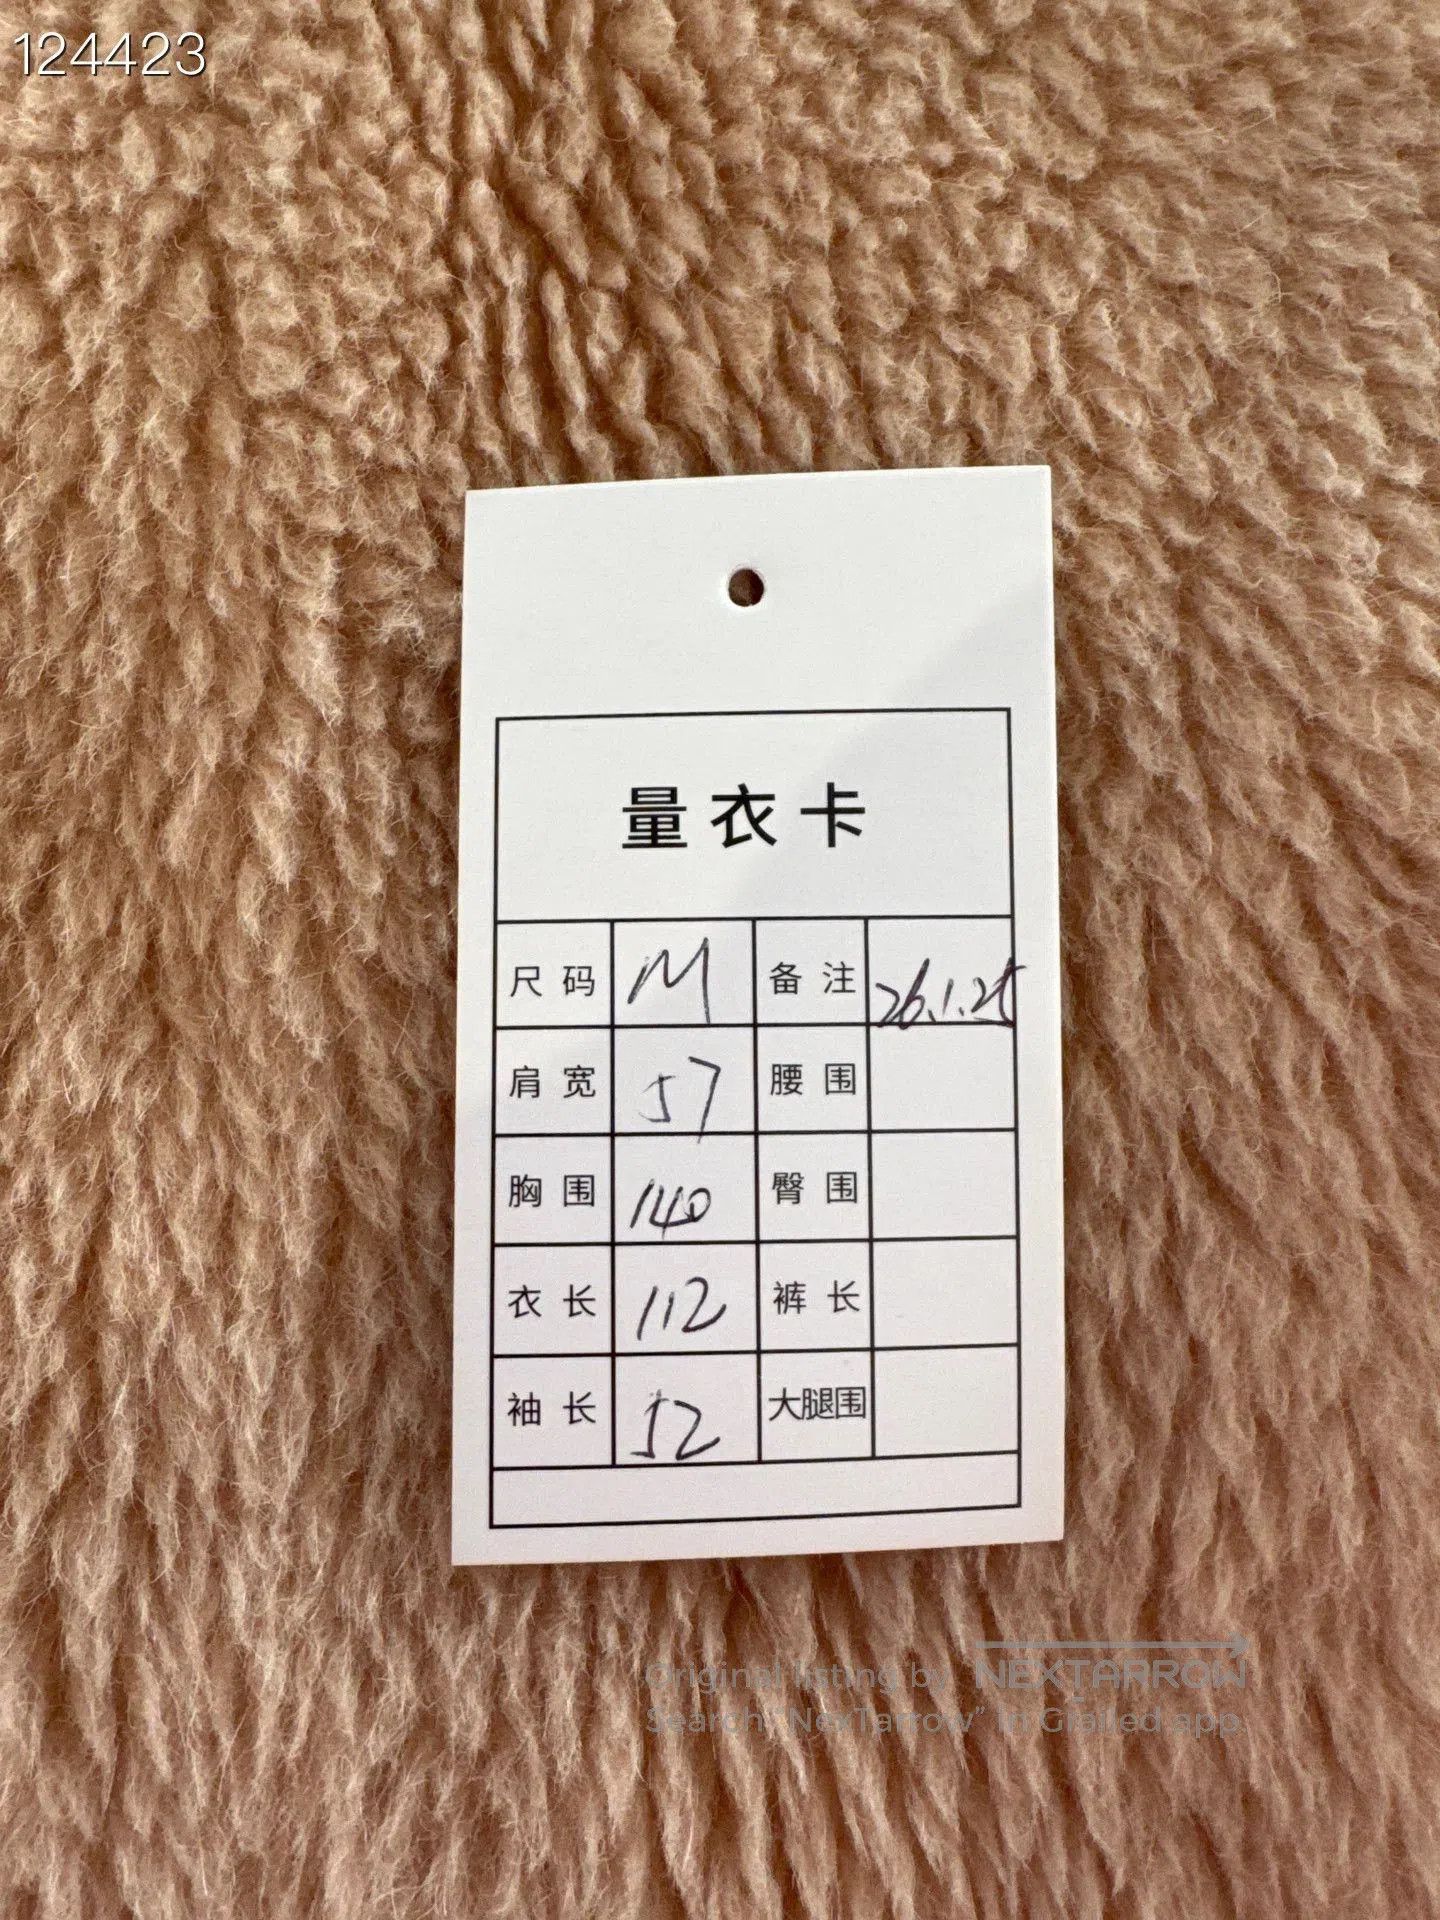 124423
量衣卡
尺码 M 备注 26.1.25
肩宽 57 腰围
胸围 140 臀围
衣长 112 裤长
袖长 52 大腿围
Original listing by NEXTARROW
Search "NexTarrow" in Grailed app.